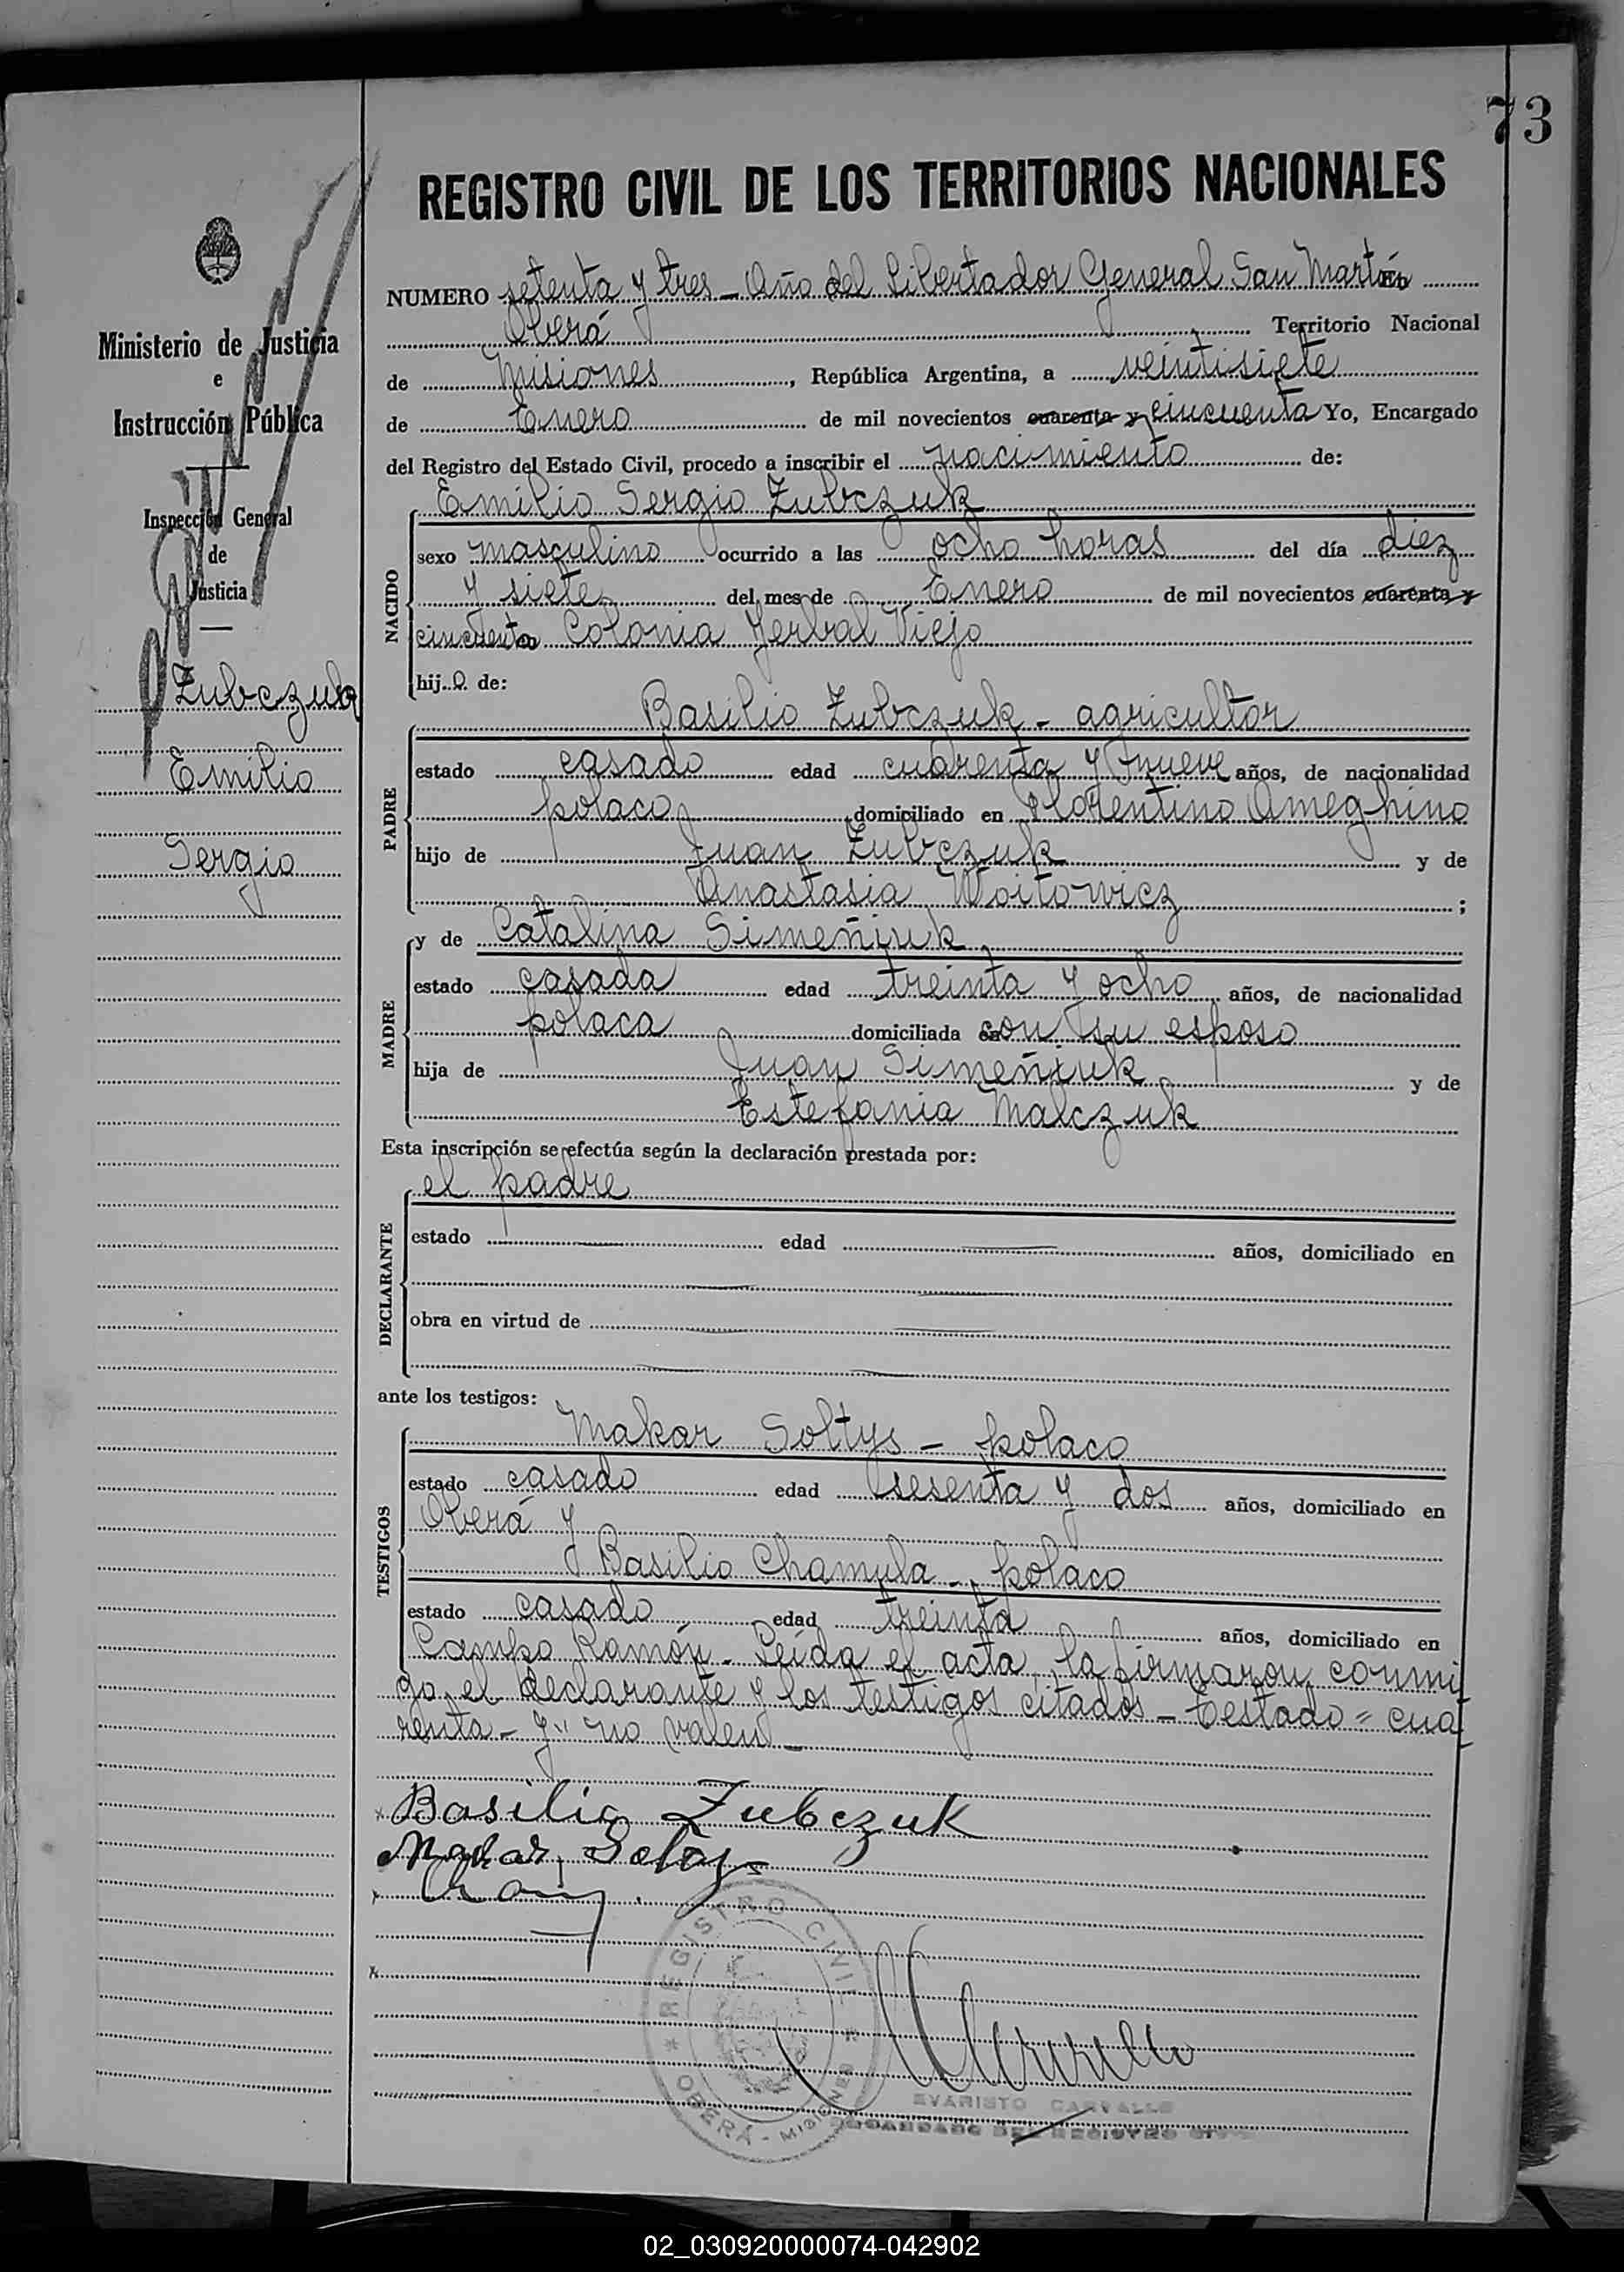 73
REGISTRO CIVIL DE LOS TERRITORIOS NACIONALES
Ministerio de Justicia
e
Instrucción Pública
Inspección General
de
Justicia
Zubczuk
Emilio
Sergio
NUMERO setenta y tres - Año del Libertador General San Martín
Oberá Territorio Nacional
de Misiones, República Argentina, a veintisiete
de Enero de mil novecientos cuarenta y cincuenta Yo, Encargado
del Registro del Estado Civil, procedo a inscribir el nacimiento de:
NACIDO
Emilio Sergio Zubczuk
sexo masculino ocurrido a las ocho horas del día diez
y siete del mes de Enero de mil novecientos cuarenta y
cincuenta Colonia Yerbal Viejo
hijo de:
PADRE
Basilio Zubczuk - agricultor
estado casado edad cuarenta y nueve años, de nacionalidad
polaco domiciliado en Florentino Ameghino
hijo de Juan Zubczuk y de
Anastasia Woitowicz ;
MADRE
y de Catalina Simeñiuk
estado casada edad treinta y ocho años, de nacionalidad
polaca domiciliada con su esposo
hija de Juan Simeñiuk y de
Estefania Malczuk
Esta inscripción se efectúa según la declaración prestada por:
DECLARANTE
el padre
estado edad años, domiciliado en
obra en virtud de
ante los testigos:
TESTIGOS
Makar Soltys - polaco
estado casado edad sesenta y dos años, domiciliado en
Oberá y
Basilio Chamula - polaco
estado casado edad treinta años, domiciliado en
Campo Ramón - Leída el acta, la firmaron conmi
go, el declarante y los testigos citados - Testado = cua
renta - y " no valen -
Basilio Zubczuk
Makar Soltys
REGISTRO CIVIL
OBERÁ - MISIONES
EVARISTO CARVALLO
ENCARGADO DEL REGISTRO CIVIL
02_030920000074-042902